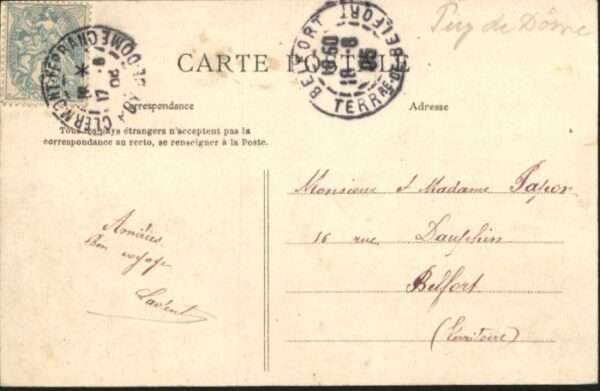 Puy de Dôme
CARTE POSTALE
CLERMONT-FERRAND
PUY-DE-DOME
17 - 8
05
BELFORT
BELFORT
18 - 8
05
TERRRE DE BELFORT
Correspondance
Adresse
Tous les pays étrangers n'acceptent pas la
correspondance au recto, se renseigner à la Poste.
Monsieur & Madame
16 rue Dauphin
Belfort
(Territoire)
Amitiés
Bon voyage